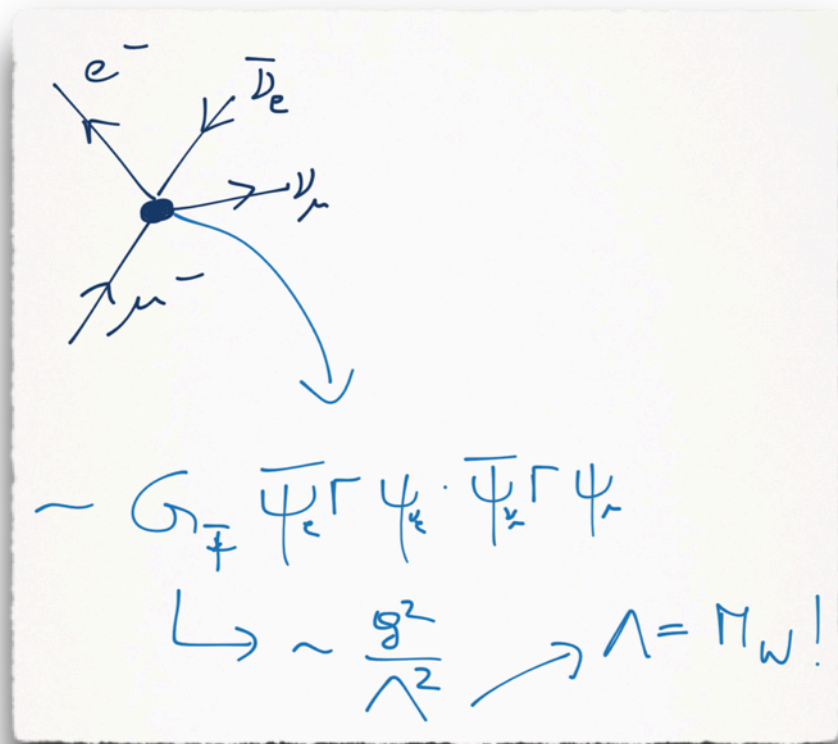 e⁻
ν̄_e
ν_μ
μ⁻
~ G_F ψ̄_e Γ ψ_{ν_e} · ψ̄_{ν_μ} Γ ψ_μ
~ g²/Λ² Λ = M_W!